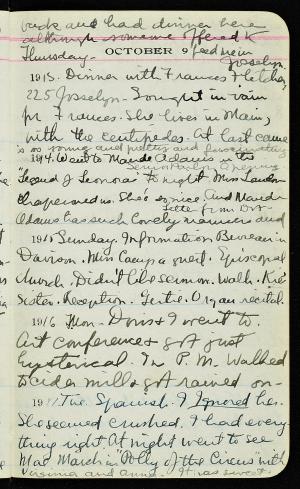 back and had dinner here
although someone offered to
Thursday. OCTOBER 9 feed me in
Josselyn.
1913. Dinner with Frances Fletcher,
225 Josselyn. Sought in vain
for Frances. She lives in Main,
with the centipedes. At last came
is so young and pretty and fascinating
1914. Went to Maude Adams in the
"Legend of Leonora" to-night. Miss
chaperoned us. She's so nice. And Maude
Letter from Dot
Adams has such lovely manners and
1915 Sunday. Information Bureau in
Davison. Miss a guest. Episcopal
church. Didn't like sermon. Walk.
Reception. Organ recital.
1916 Mon - Doris & I went to
Art conference & got just
hysterical. In P.M. walked
to cider mill & got rained on -
Tue. Spanish. I Ignored her.
She seemed crushed. I had every-
thing right. At night went to see
Mae Marsh in "Polly of the Circus" with
Virginia and Anna. It was sweet.